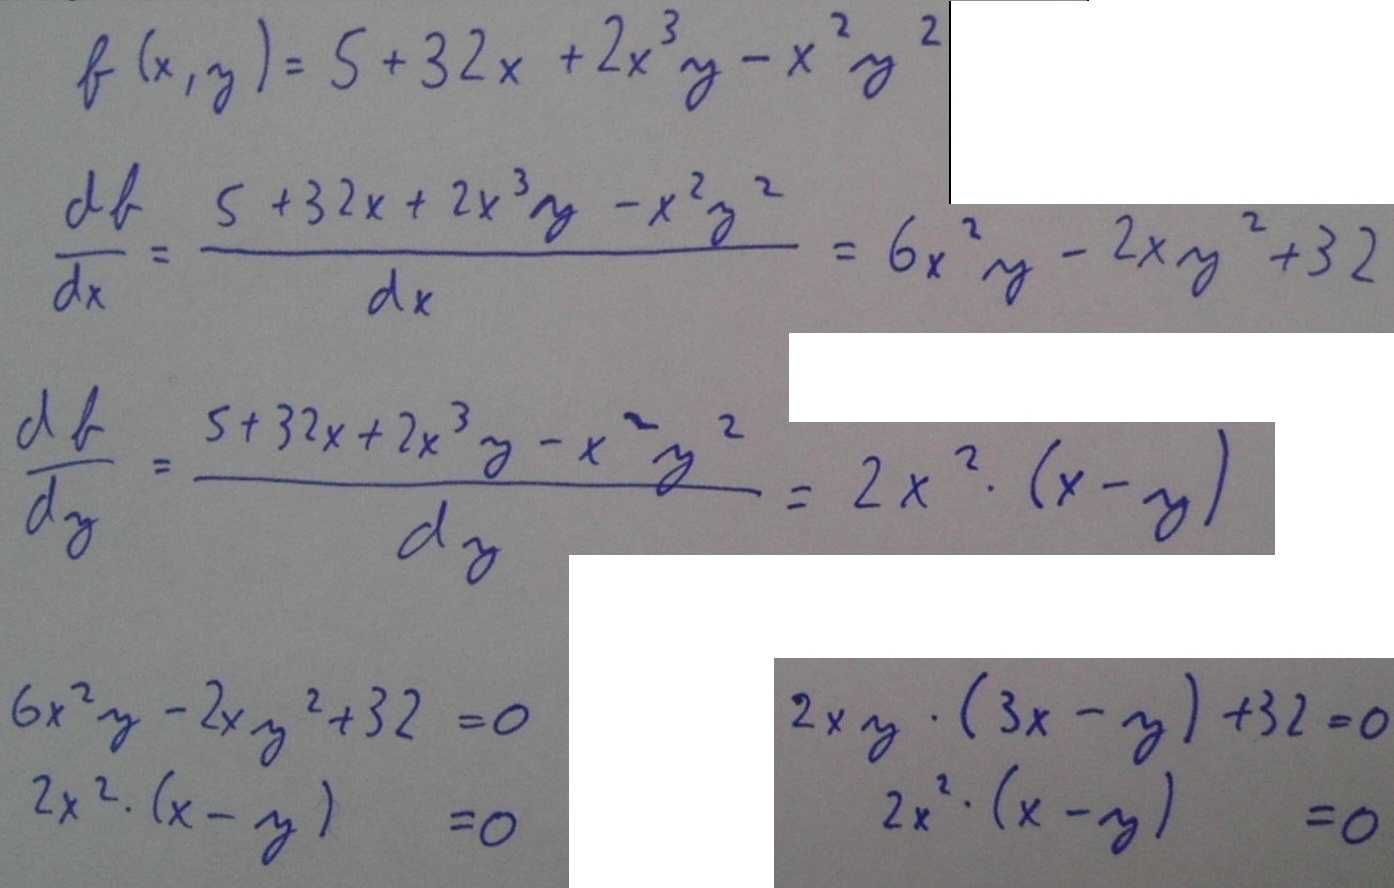 f(x,y) = 5+32x+2x³y-x²y²
df/dx = (5+32x+2x³y-x²y²)/dx = 6x²y-2xy²+32
df/dy = (5+32x+2x³y-x²y²)/dy = 2x²·(x-y)
6x²y-2xy²+32 =0
2x²·(x-y) =0
2xy·(3x-y)+32=0
2x²·(x-y) =0